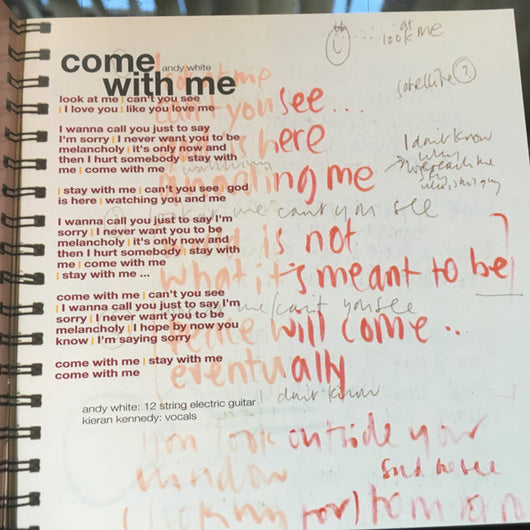 come
andy white
with me
look at me | can't you see
| I love you | like you love me
I wanna call you just to say
I'm sorry | I never want you to be
melancholy | it's only now and
then I hurt somebody | stay with
me | come with me
| stay with me | can't you see | god
is here | watching you and me
I wanna call you just to say I'm
sorry | I never want you to be
melancholy | it's only now and
then I hurt somebody | stay with
me | come with me
| stay with me ...
come with me | can't you see
| I wanna call you just to say I'm
sorry | I never want you to be
melancholy | I hope by now you
know | I'm saying sorry
come with me | stay with me
come with me
andy white: 12 string electric guitar
kieran kennedy: vocals
at
look me
satellite ?
I don't know
why
look at me
can't you see...
is here
me
can't you see
is not
what it's meant to be
me/can't you see
peace will come..
eventually
I don't know
you look outside your
window
looking for